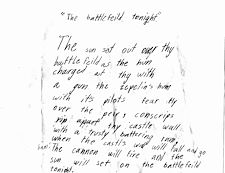 "The battlefeild tonight"
The sun set out over thy
battlefeild as the hun
charged at thy with
a gun the zepelin's hum
with it's pilots fear fly
over the poor conscrips
rip appart thy castle wall.
with a trusty battering ram,
when the castle wall will fall and go
bam. The cannon will fire and the
sun will set on the battlefeild
tonight.